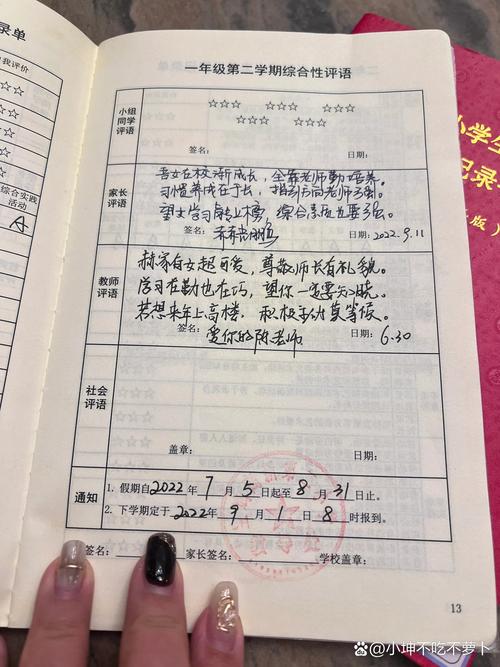 录单
我评价
综合实践
活动
A
一年级第二学期综合性评语
小组
同学
评语
☆☆☆ ☆☆☆ ☆☆☆
☆☆☆ ☆☆☆
签名： 日期：
家长
评语
吾女在校渐成长，全靠老师勤培养。
习惯养成在于长，指引方向老师强。
望女学习能上榜，综合素质也要强。
签名： 日期：2022.9.11
教师
评语
郝家有女超可爱，尊敬师长有礼貌。
学习在勤也在巧，望你一定要知晓。
若想来年上高楼，积极主动莫等候。
签名：爱你的陈老师 日期：6.30
社会
评语
盖章： 日期：
通知
1. 假期自2022年7月5日起至8月31日止。
2. 下学期定于2022年9月1日8时报到。
签名： 家长签名： 学校盖章：
13
小学生
记录
版）
百度 @小坤不吃不萝卜